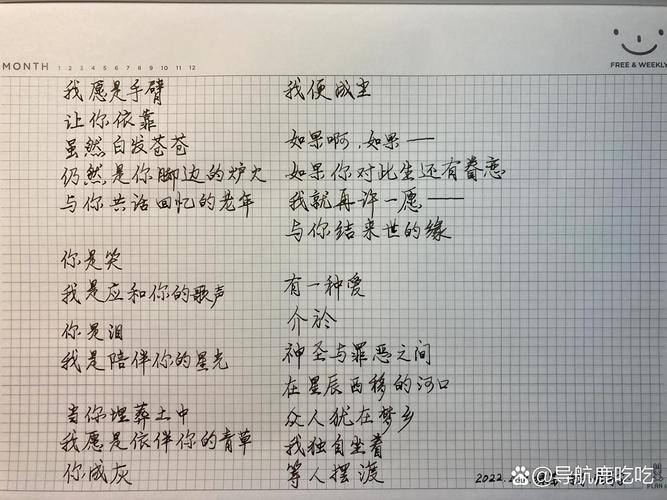 FREE & WEEKLY
MONTH 1 2 3 4 5 6 7 8 9 10 11 12
我愿是手臂
让你依靠
虽然白发苍苍
仍然是你脚边的炉火
与你共话回忆的老年
你是笑
我是应和你的歌声
你是泪
我是陪伴你的星光
当你埋葬土中
我愿是依伴你的青草
你成灰
我便成尘
如果啊,如果——
如果你对此生还有眷恋
我就再许一愿——
与你结来世的缘
有一种爱
介於
神圣与罪恶之间
在星辰西移的河口
众人犹在梦乡
我独自坐着
等人摆渡
2022.
导航鹿吃吃